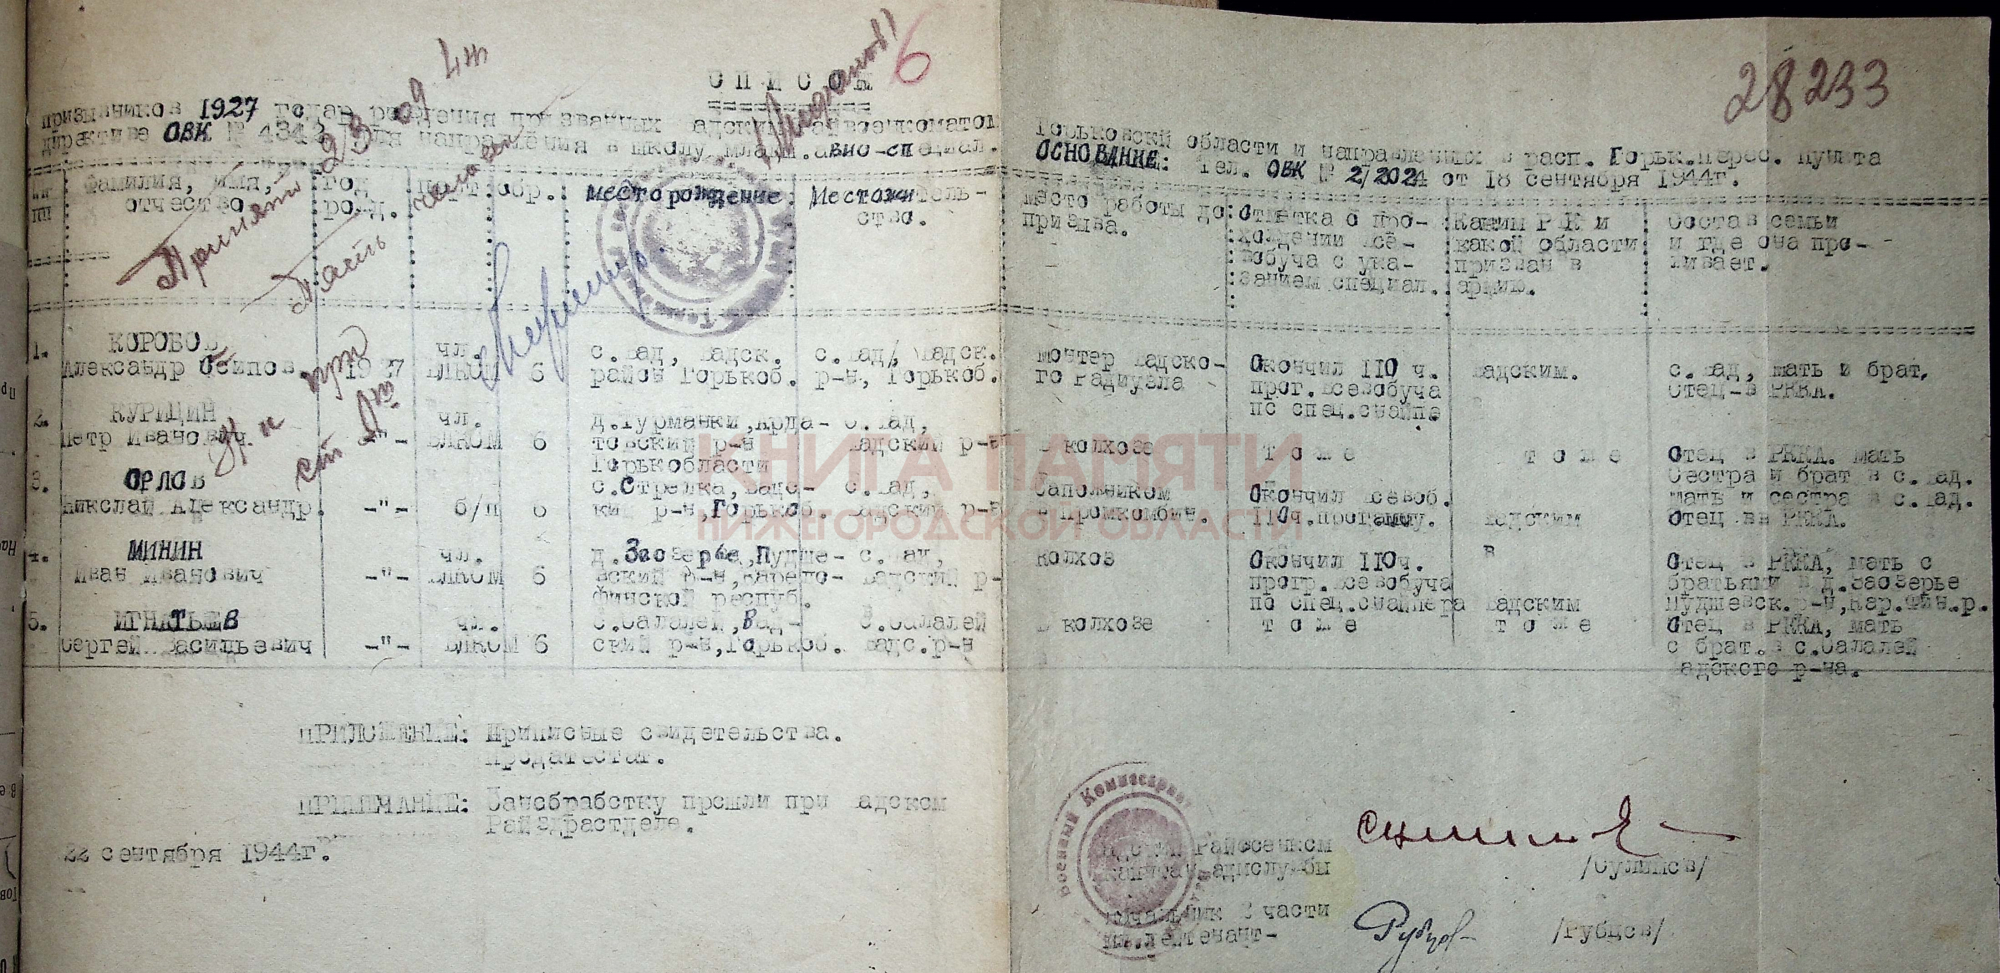 6
28233
СПИСОК
призывников 1927 года рождения призванных Вадским райвоенкоматом Горьковской области и направленных в расп. Горьк.Перес. пункта
директиве ОВК № 4343 для направления в школу младш.авио-специал. ОСНОВАНИЕ: Тел. ОВК № 2/2024 от 18 сентября 1944г.
Принято 23 од 4ж
№№ пп
Фамилия, имя, отчество
год рожд.
парт.
обр.
место рождение
Местожительство.
место работы до призыва.
Отметка о прохождении всевобуча с указанием специал.
Каким Р К и какой области призван в армию.
Состав семьи и где она проживает.
1. КОРОБОВ чл. с.Вад, Вадск. с.Вад, Вадск. монтер Вадско- Окончил 110 ч. Вадским. с.Вад, мать и брат,
Александр Осипов. 1927 ВЛКСМ 6 район Горькоб. р-н, Горькоб. го Радиузла прог.Всевобуча Отец-в РККА.
по спец.снайпе
2. КУРИЦИН чл. д.Гурманки,Арда- с.Вад,
Петр Иванович. -"- ВЛКСМ 6 товский р-н Вадский р-н В колхозе т о ж е т о ж е Отец в РККА. мать
Горькобласти Сестра и брат в с.Вад.
3. ОРЛОВ с.Стрелка,Вадс- с.Вад, Сапожником Окончил Всевоб. мать и сестра в с.Вад.
Николай Александр. -"- б/п 6 кий р-н,Горькоб. Вадский р-н в Промкомбин. 110ч.программу. Вадским Отец в РККА.
4. МИНИН чл. д.Заозерье,Пудже- с.Вад, колхоз Окончил 110ч. в Отец в РККА, мать с
Иван Иванович -"- ВЛКСМ 6 вский р-н,Карело- Вадский р- прогр.Всевобуча братьями в д.Заозерье
финской респуб. по спец.снайпера Вадским Пудшевск.р-н,Кар.Фин.р.
5. ИГНАТЬЕВ чл. с.Салалей,Вад- С.Салалей В колхозе т о ж е т о ж е Отец в РККА, мать
Сергей Васильевич -"- ВЛКСМ 6 ский р-н,Горькоб. Вадс.р-н с брат. в с.Салалей
Вадского р-на.
КНИГА ПАМЯТИ
НИЖЕГОРОДСКОЙ ОБЛАСТИ
ПРИЛОЖЕНИЕ: Приписные свидетельства.
продатестат.
ПРИМЕЧАНИЕ: Санобработку прошли при Вадском
Райздравотделе.
22 сентября 1944г.
Военный Комиссариат
Райвоенком
Капитан адмслужбы /Сулимов/
Начальник 2 части
мл.лейтенант- Рубцов /Рубцов/